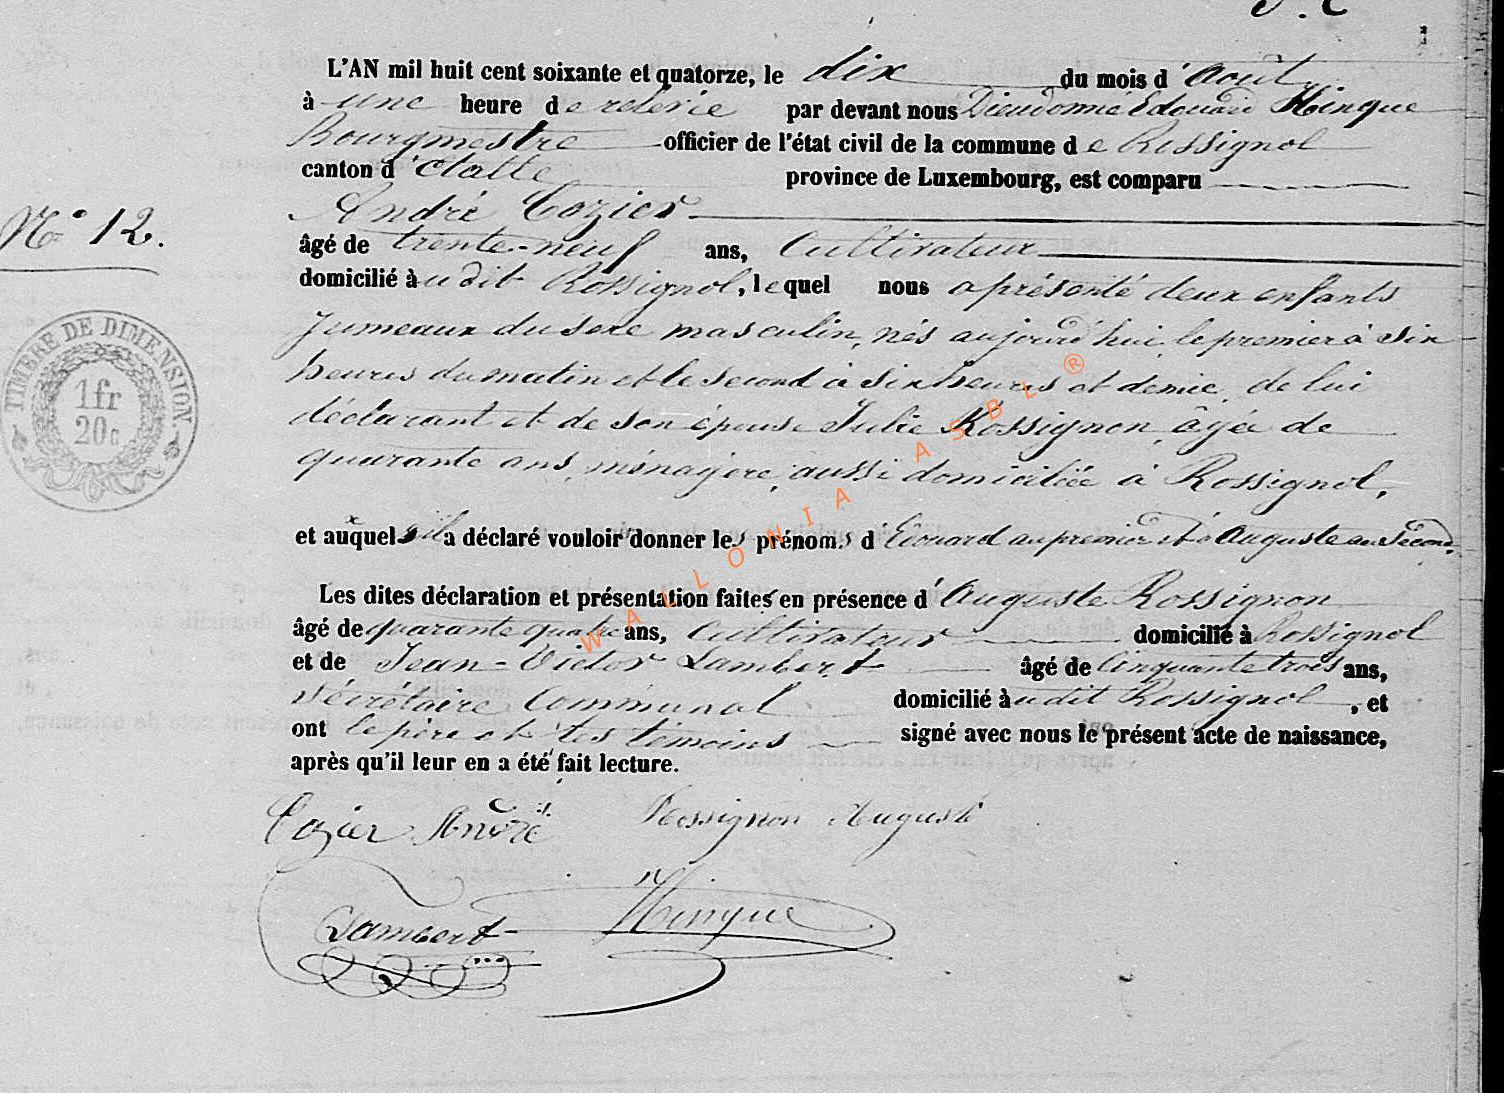 L'AN mil huit cent soixante et quatorze, le dix du mois d'Août
à une heure de relevée par devant nous Dieudonné Édouard Hinque
Bourgmestre officier de l'état civil de la commune de Rossignol
canton d'Etalle province de Luxembourg, est comparu
André Cozier
N° 12.
âgé de trente-neuf ans, Cultivateur
domicilié audit Rossignol, lequel nous a présenté deux enfants
Jumeaux du sexe masculin, nés aujourd'hui, le premier à six
heures du matin et le second à six heures et demie, de lui
déclarant et de son épouse Julie Rossignon, âgée de
quarante ans, ménagère, aussi domiciliée à Rossignol,
et auxquels il a déclaré vouloir donner les prénoms d'Edouard au premier et d'Auguste au Second.
Les dites déclaration et présentation faites en présence d'Auguste Rossignon
âgé de quarante quatre ans, Cultivateur domicilié à Rossignol
et de Jean-Victor Lambert âgé de Cinquante trois ans,
Sécrétaire Communal domicilié audit Rossignol, et
ont le père et les temoins signé avec nous le présent acte de naissance,
après qu'il leur en a été fait lecture.
Cozier André Rossignon Auguste
Lambert Hinque
TIMBRE DE DIMENSION.
1fr
20c
WALLONIA ASBL ®